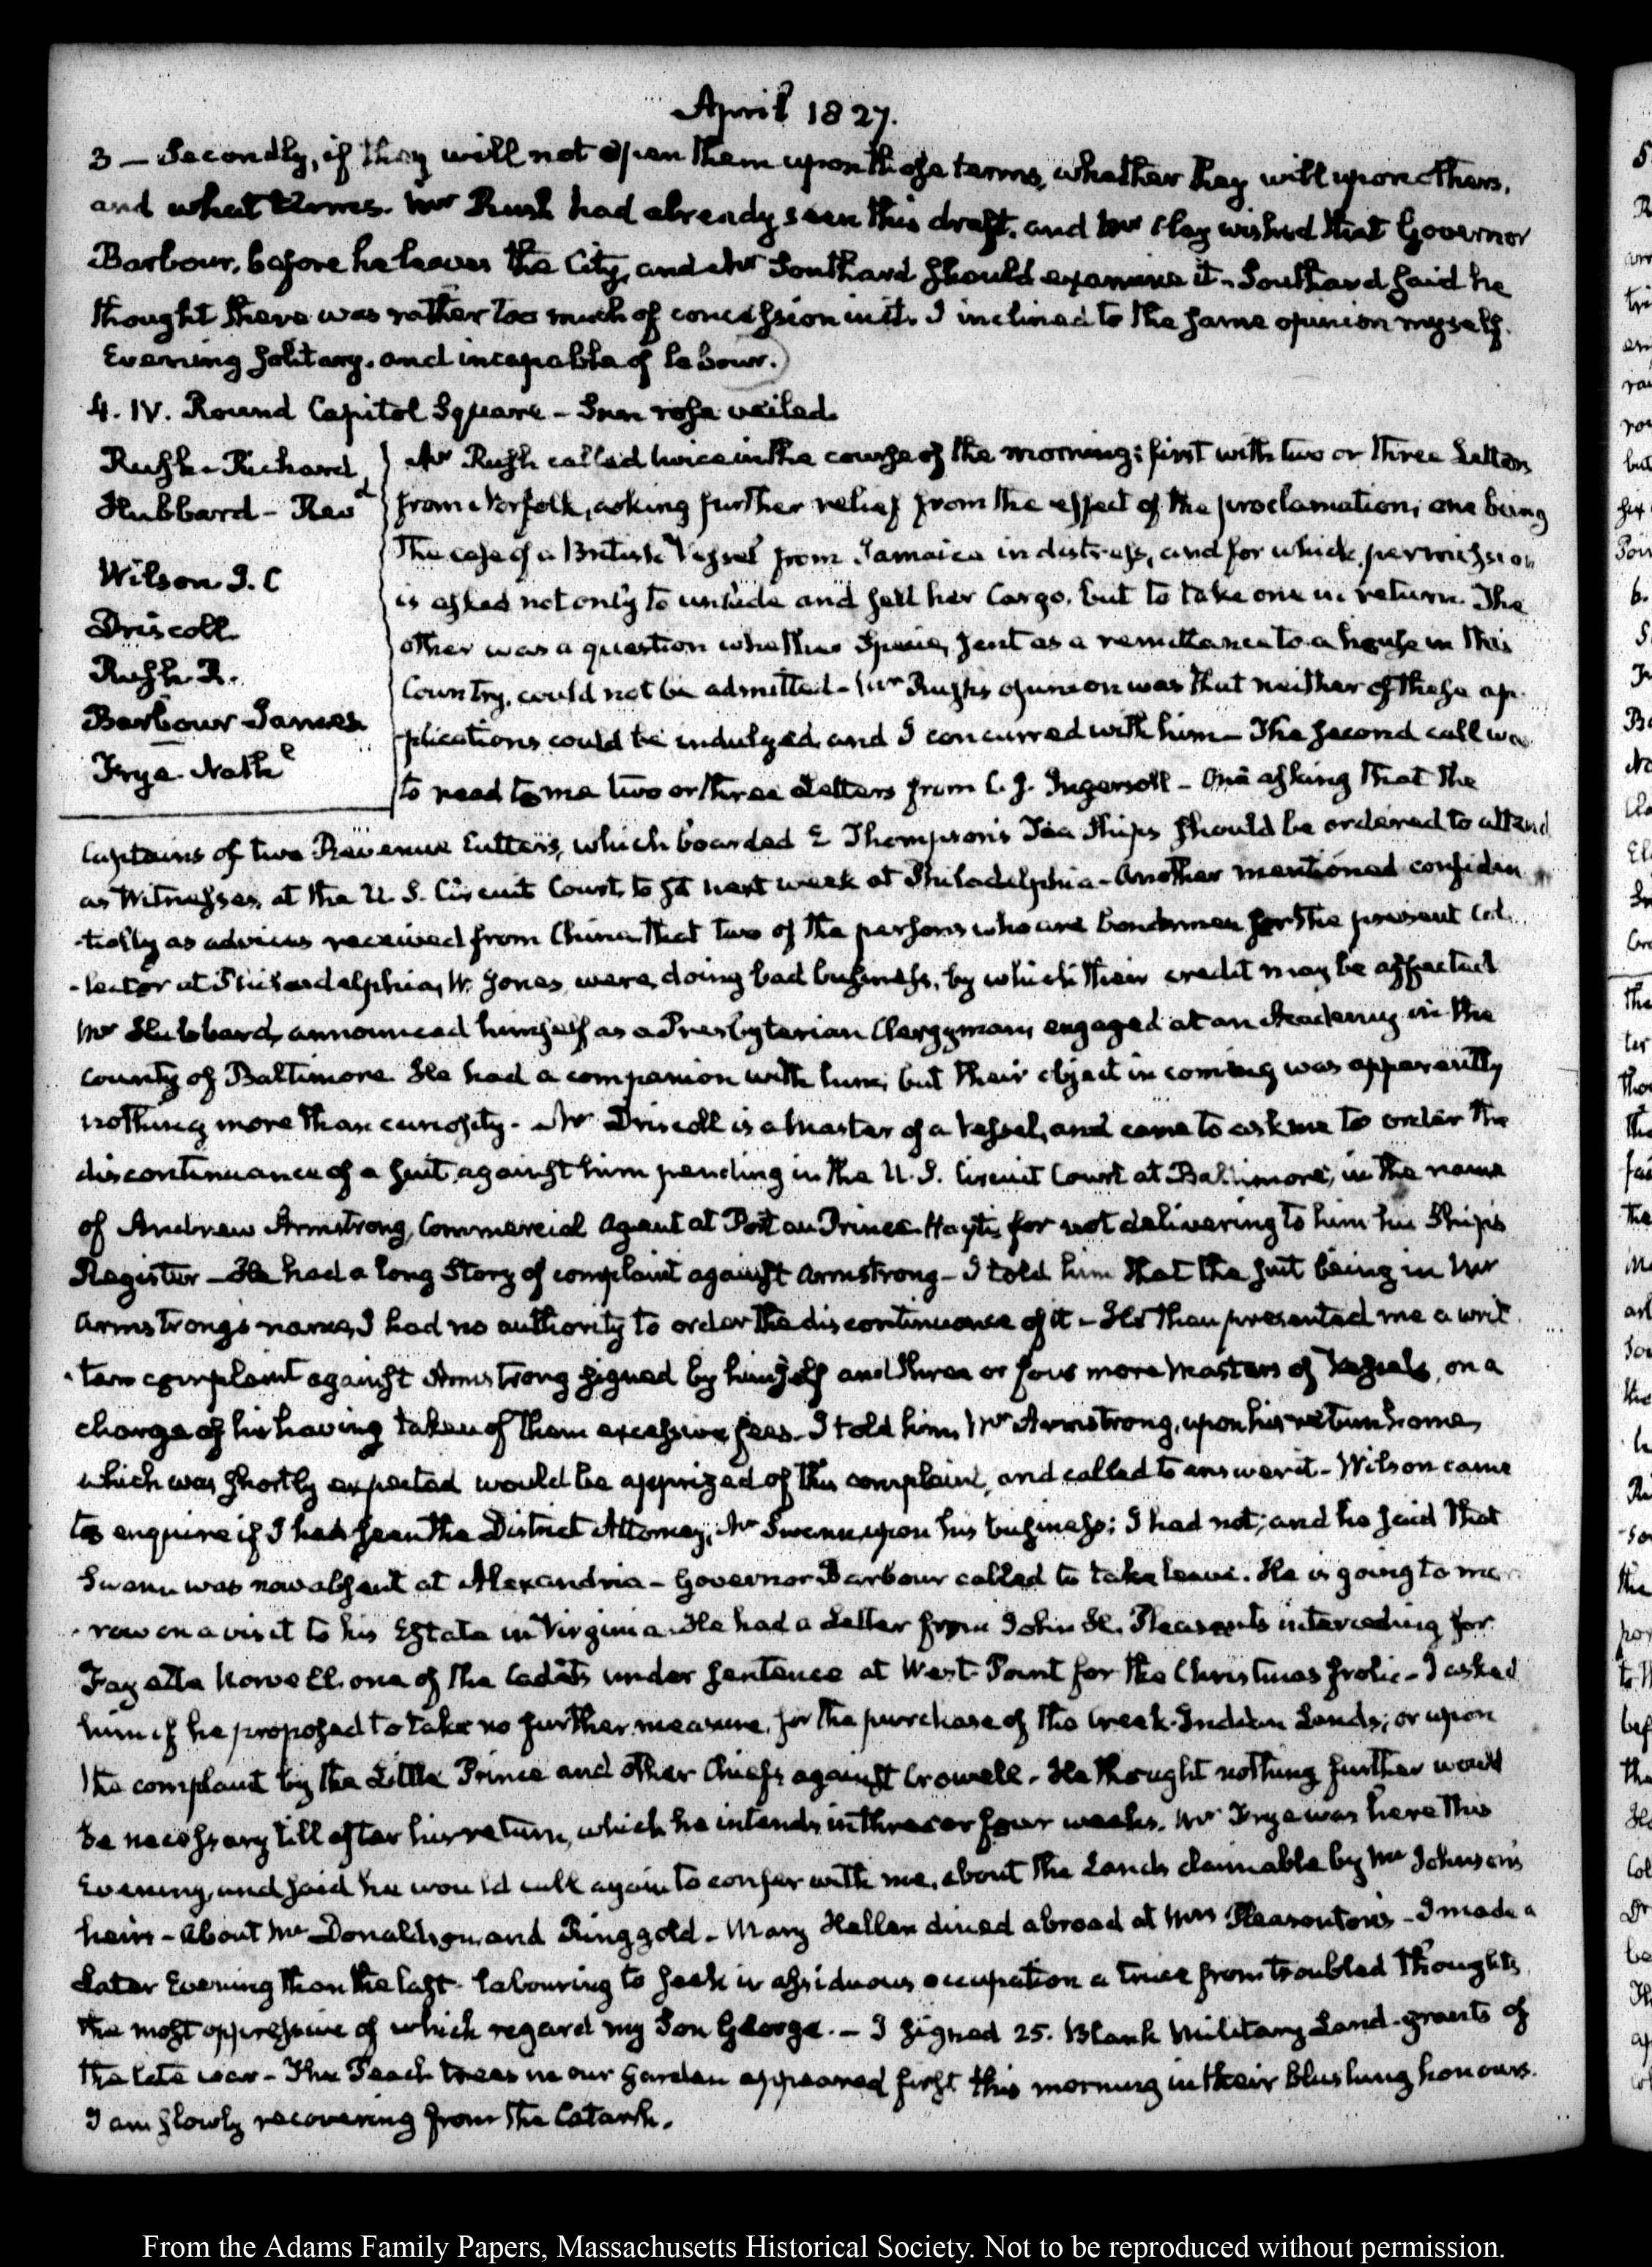 April 1827.
3 — Secondly, if they will not open them upon those terms, whether they will upon others,
and what terms. Mr Rush had already seen this draft, and Mr Clay wished that Governor
Barbour, before he leaves the City, and Mr Southard should examine it. Southard said he
thought there was rather too much of concession in it. I inclined to the same opinion myself.
Evening solitary, and incapable of labour.
4. IV. Round Capitol Square — Sun rose veiled.
Rush - Richard
Hubbard - Revd
Wilson J. C
Driscoll
Rush R.
Barbour James
Frye Nathl
Mr Rush called twice in the course of the morning; first with two or three Letters
from Norfolk, asking further relief from the effect of the proclamation; one being
the case of a British Vessel from Jamaica in distress, and for which permission
is asked not only to unlade and sell her Cargo, but to take one in return. The
other was a question whether Specie, sent as a remittance to a house in this
Country, could not be admitted - Mr Rush's opinion was that neither of these ap-
-plications could be indulged, and I concurred with him — The second call was
to read to me two or three Letters from C. J. Ingersoll — One asking that the
Captains of two Revenue Cutters, which boarded E Thompson's Tea Ships should be ordered to attend
as Witnesses, at the U. S. Circuit Court, to sit next week at Philadelphia - Another mentioned confiden
-tially as advices received from China that two of the persons who are bondsmen for the present Col-
-lector at Philadelphia, W. Jones, were doing bad business, by which their credit may be affected
Mr Hubbard announced himself as a Presbyterian Clergyman, engaged at an Academy in the
County of Baltimore. He had a companion with him; but their object in coming was apparently
nothing more than curiosity - Mr Driscoll is a Master of a Vessel, and came to ask me to order the
discontinuance of a suit against him pending in the U. S. Circuit Court at Baltimore; in the name
of Andrew Armstrong, Commercial Agent at Port au Prince Hayti, for not delivering to him his Ship's
Register — He had a long Story of complaint against Armstrong — I told him that the suit being in Mr
Armstrong's name, I had no authority to order the discontinuance of it — He then presented me a writ
-ten complaint against Armstrong signed by himself and three or four more Masters of Vessels, on a
charge of his having taken of them excessive fees. I told him, Mr Armstrong, upon his return home,
which was shortly expected would be apprized of this complaint, and called to answer it - Wilson came
to enquire if I had seen the District Attorney, Mr Swann, upon his business; I had not; and he said that
Swann was now absent at Alexandria - Governor Barbour called to take leave. He is going to mor
-row on a visit to his Estate in Virginia. He had a Letter from John H. Pleasants interceding for
Fayette Norvell, one of the Cadets under sentence at West-Point for the Christmas frolic - I asked
him if he proposed to take no further measure, for the purchase of the Creek-Indian Lands; or upon
the complaint by the Little Prince and other Chiefs against Crowell - He thought nothing further would
be necessary till after his return, which he intends in three or four weeks. Mr Frye was here this
Evening, and said he would call again to confer with me, about the Lands claimable by Mr Johnson's
heirs - About Mr Donaldson, and Ringgold - Mary Hellen dined abroad at Mrs Pleasonton's - I made a
later Evening than the last - labouring to seek in assiduous occupation a truce from troubled thoughts,
the most oppressive of which regard my Son George. — I signed 25. Blank Military Land-grants of
the late war - The Peach trees in our garden appeared first this morning in their blushing honours.
I am slowly recovering from the Catarrh.
From the Adams Family Papers, Massachusetts Historical Society. Not to be reproduced without permission.